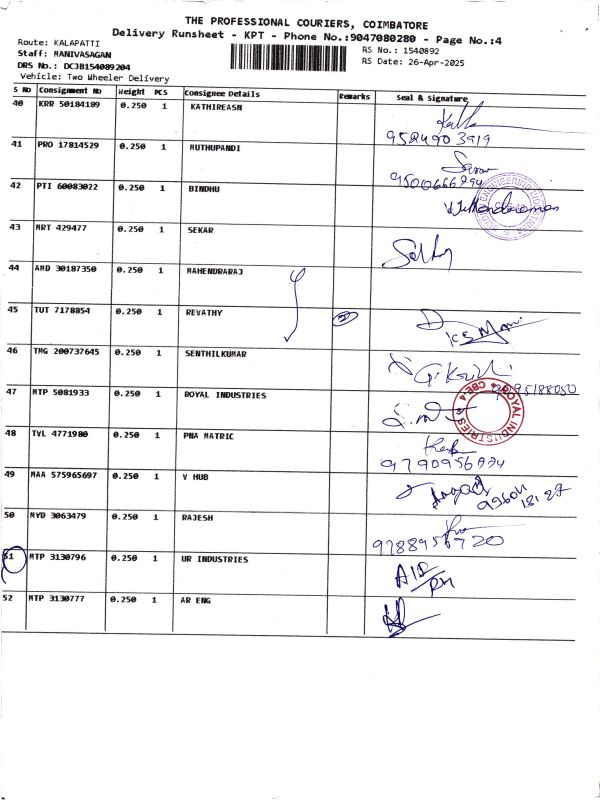 THE PROFESSIONAL COURIERS, COIMBATORE
Delivery Runsheet - KPT - Phone No.:9047080280 - Page No.:4
Route: KALAPATTI
Staff: MANIVASAGAN
DRS No.: DCJB154089204
Vehicle: Two Wheeler Delivery
RS No.: 1540892
RS Date: 26-Apr-2025
S No Consignment No Weight PCS Consignee Details Remarks Seal & Signature
40 KRR 50184189 0.250 1 KATHIREASN
9524903919
41 PRO 17814529 0.250 1 MUTHUPANDI
42 PTI 60083022 0.250 1 BINDHU
43 MRT 429477 0.250 1 SEKAR
44 AMD 30187350 0.250 1 MAHENDRARAJ
45 TUT 7178854 0.250 1 REVATHY
46 TMG 200737645 0.250 1 SENTHILKUMAR
47 MTP 5081933 0.250 1 ROYAL INDUSTRIES
ROYAL INDUSTRIES CBE-4
48 TVL 4771980 0.250 1 PNA MATRIC
49 MAA 575965697 0.250 1 V HUB
50 MYD 3063479 0.250 1 RAJESH
51 MTP 3130796 0.250 1 UR INDUSTRIES
52 MTP 3130777 0.250 1 AR ENG